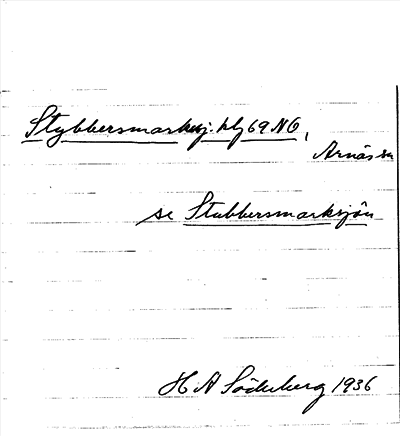 Stybbersmarksj. klj 69 NO,
Arnäs sn
se Stubbersmarksjön
H A Söderberg 1936